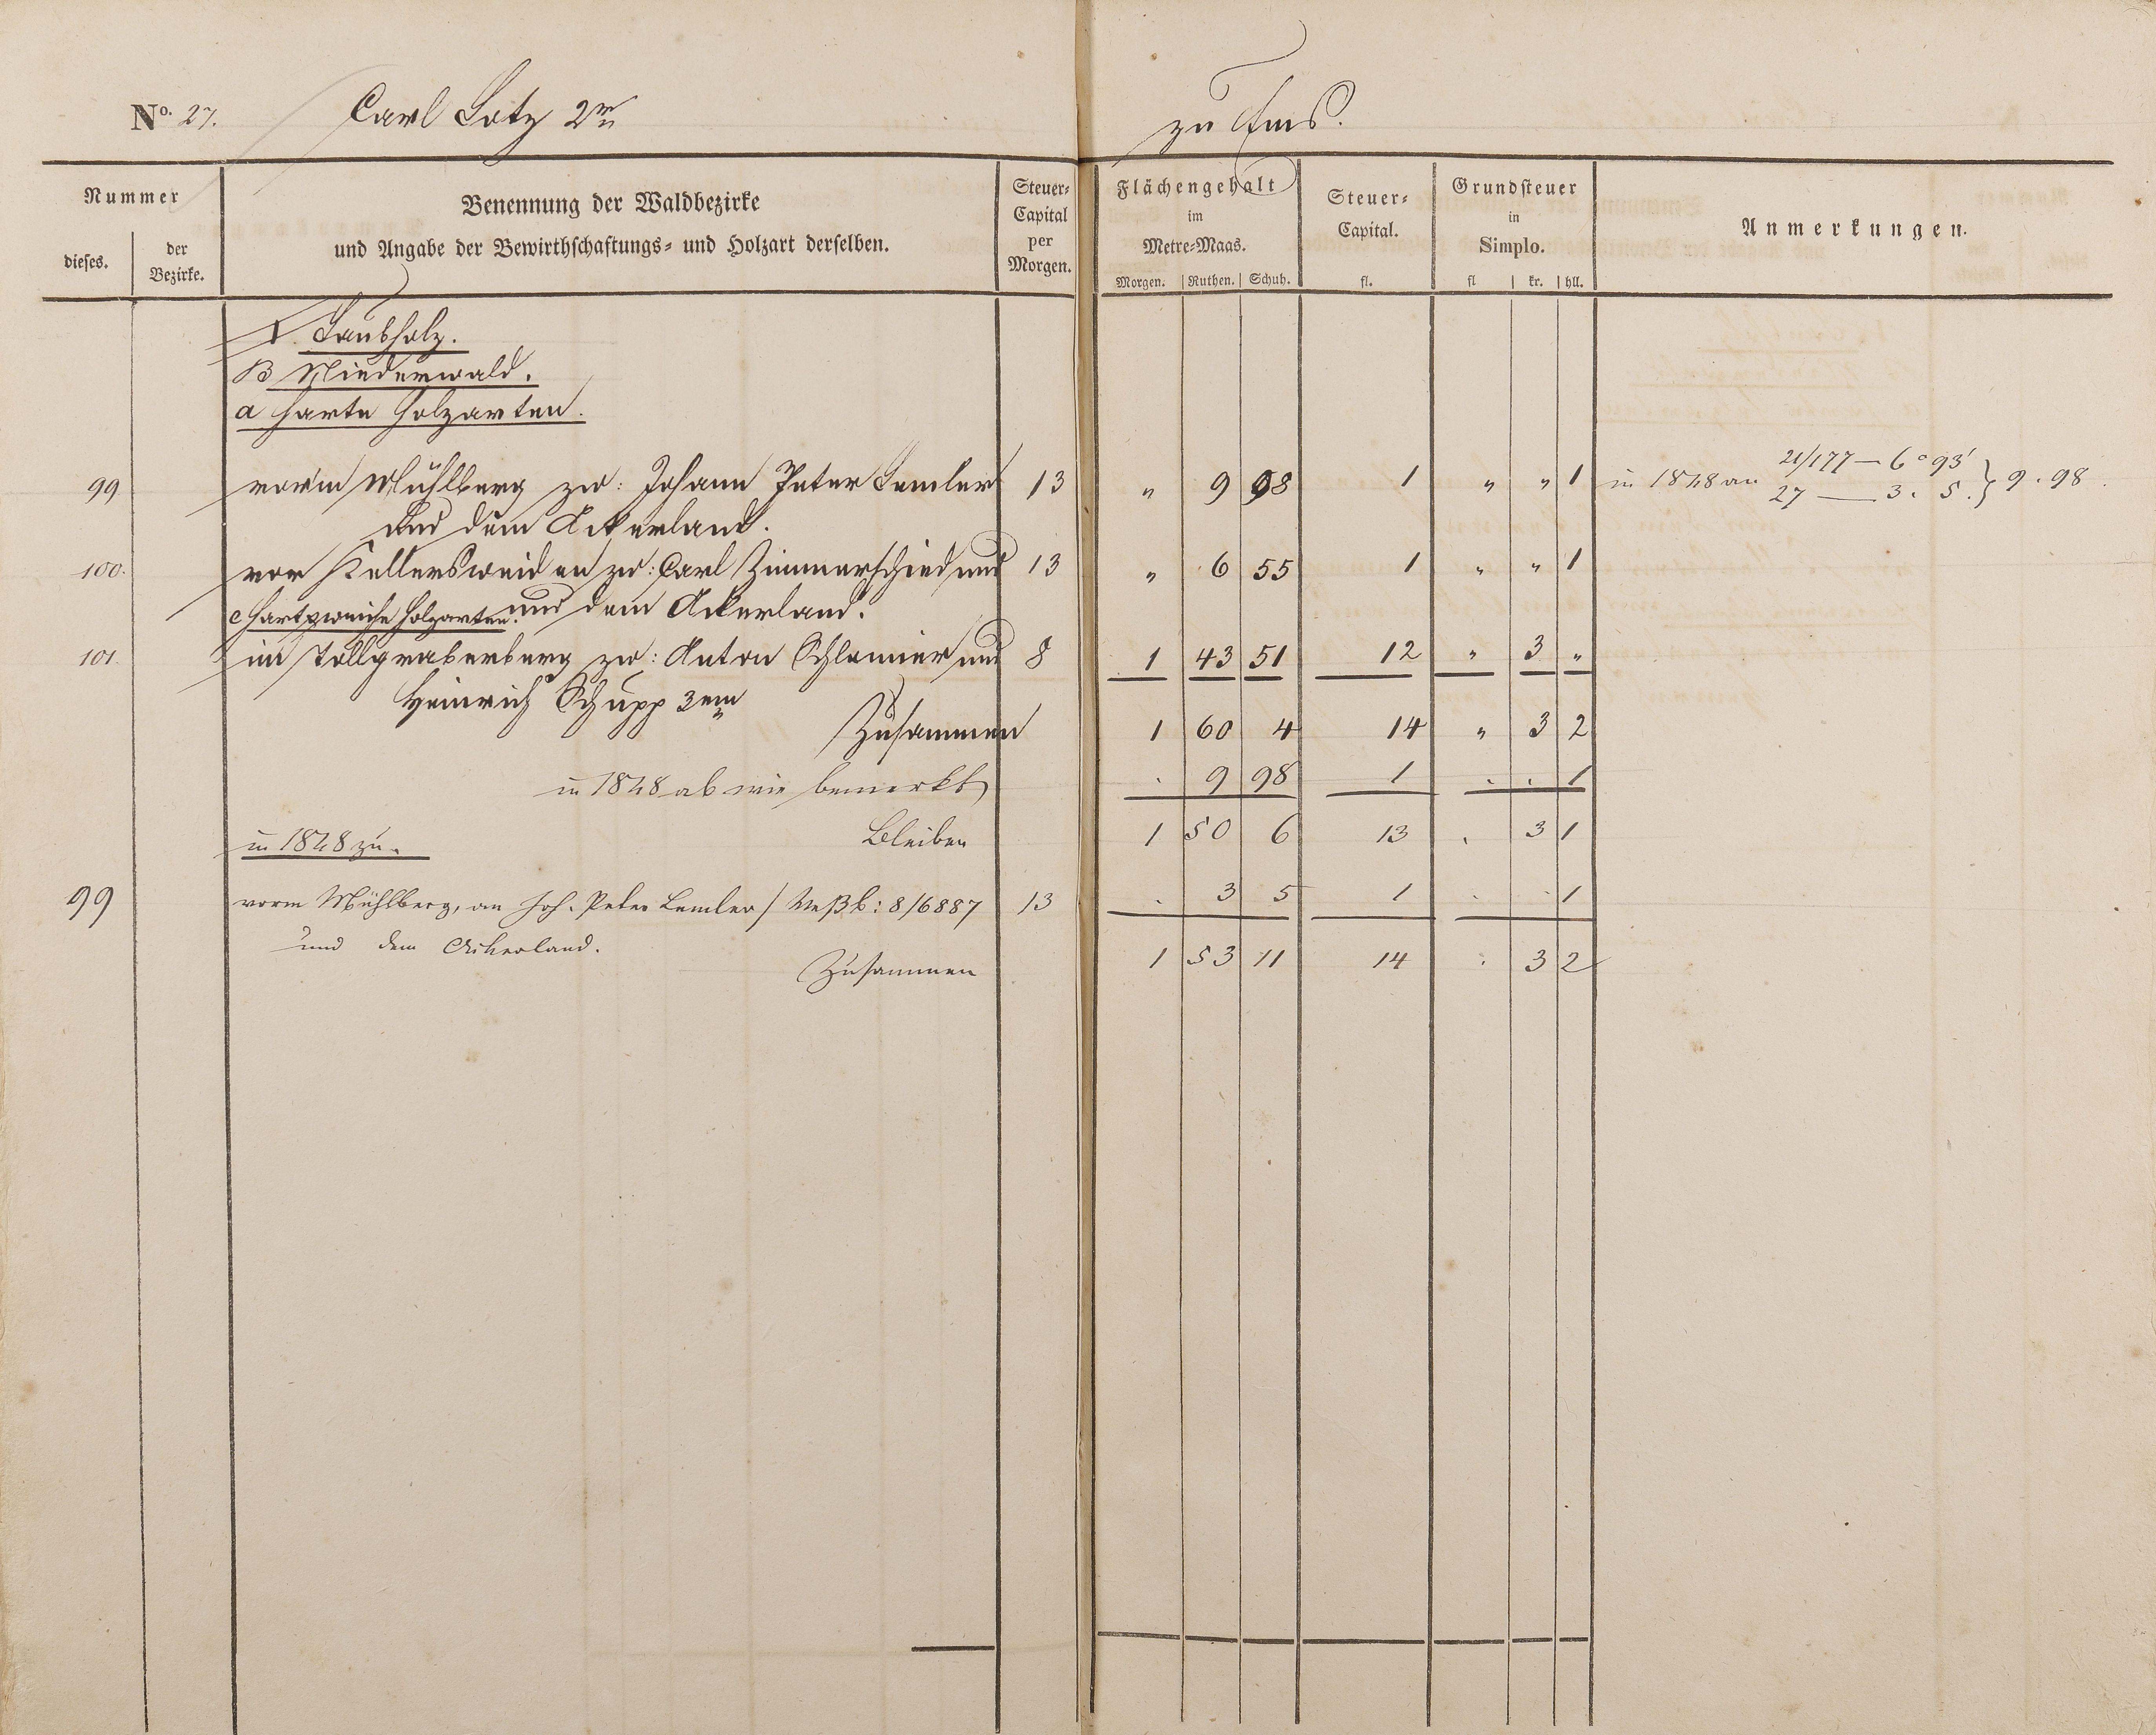 No. 27. Carl Lotz 2r zu Ems.
Nummer
dieses.
der
Bezirke.
Benennung der Waldbezirke
und Angabe der Bewirthschaftungs- und Holzart derselben.
Steuer-
Capital
per
Morgen.
Flächengehalt
im
Metre-Maas.
Morgen. Ruthen. Schuh.
Steuer-
Capital.
fl.
Grundsteuer
in
Simplo.
fl kr. hll.
Anmerkungen.
Laubholz.
B Niederwald.
a harte Holzarten.
99 vorm Mühlberg zw: Johann Peter Lemler 13 " 9 98 1 " " 1 in 1848 an 21/177 — 6° 93'
27 — 3. 5. } 9. 98.
und dem Ackerland.
100. vor Kellersweiden zw: Carl Zimmerschied und 13 " 6 55 1 " " 1
und dem Ackerland.
c hart & weiche Holzarten.
101. im Tollgraberberg zw: Anton und 8 1 43 51 12 " 3 "
Heinrich Schupp 3em
Zusammen 1 60 4 14 " 3 2
in 1848 ab wie bemerkt . 9 98 1 . . 1
Bleiben 1 50 6 13 . 3 1
in 1848 zu.
99 vorm Mühlberg, an Joh. Peter Lemler / Meßb: 8/6887 13 . 3 5 1 . . 1
und dem Ackerland.
Zusammen 1 53 11 14 . 3 2